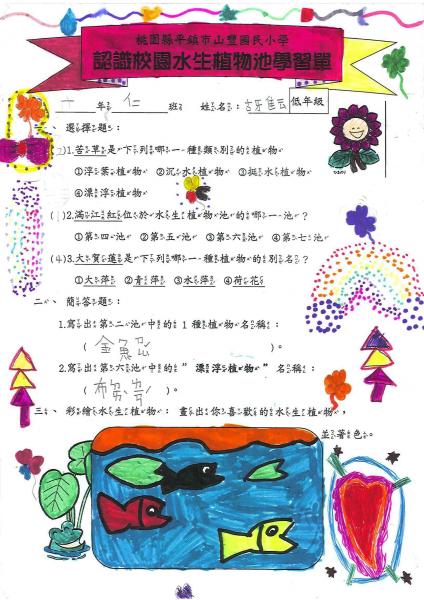 桃園縣平鎮市山豐國民小學
認識校園水生植物池學習單
年 仁 班 姓名： 低年級
一、選擇題：
(2)1.苦草是下列哪一種類別的植物
①浮葉植物 ②沉水植物 ③挺水植物
④漂浮植物
(1)2.滿江紅位於水生植物池的哪一池？
①第四池 ②第五池 ③第六池 ④第七池
(4)3.大賀蓮是下列哪一種植物的別名？
①大萍 ②青萍 ③水萍 ④荷花
二、簡答題：
1.寫出第二池中的1種植物名稱：
(金魚ㄗㄠˇ)。
2.寫出第六池中的"漂浮植物"名稱：
(布)。
三、彩繪水生植物：畫出你喜歡的水生植物，
並著色。